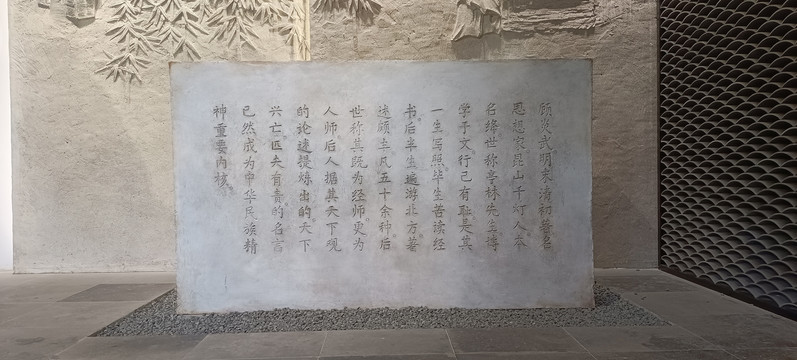 顾炎武明末清初著名
思想家昆山千灯人本
名绛世称亭林先生博
学于文行己有耻是其
一生写照。毕生苦读经
书。后半生遍游北方著
述颇丰凡五十余种。后
世称其既为经师。更为
人师后人据其天下观
的论述提炼出的天下
兴亡。匹夫有责的名言
已然成为中华民族精
神重要内核。